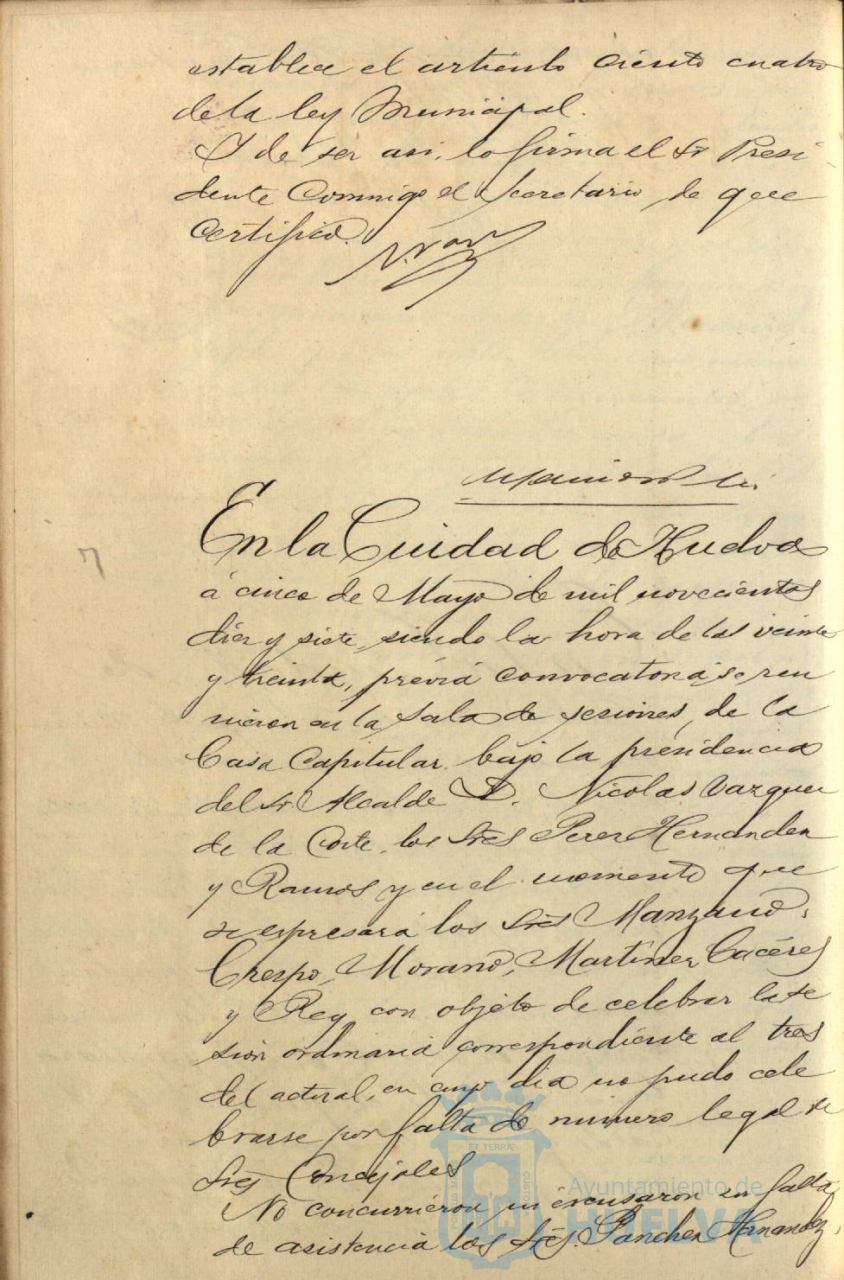 establece el artículo ciento cuatro
de la ley Municipal.
Y de ser asi, lo firma el Sr Presi
dente conmigo el Secretario, de que
Certifico.
En la Cuidad de Huelva
á cinco de Mayo de mil novecientos
diez y siete, siendo la hora de las veinte
y treinta, prévia convocatoria, se reu
nieron en la Sala de sesiones, de la
Casa Capitular bajo la presidencia
del Sr Alcalde D. Nicolas Vazquez
de la Corte, los Sres Perez Hernandez
y Ramos y en el momento que
se espresará los Sres Manzano,
Crespo, Morano, Martínez, Cacéres
y Rey con objeto de celebrar la se
sión ordinaria correspondiente al tres
del actual, en cuyo dia no pudo cele
brarse por falta de número legal de
Sres Concejales
No concurrieron ni éxcusaron su falta
de asistencia los Sres. Sanchez Hernandez,
Ayuntamiento de
HUELVA